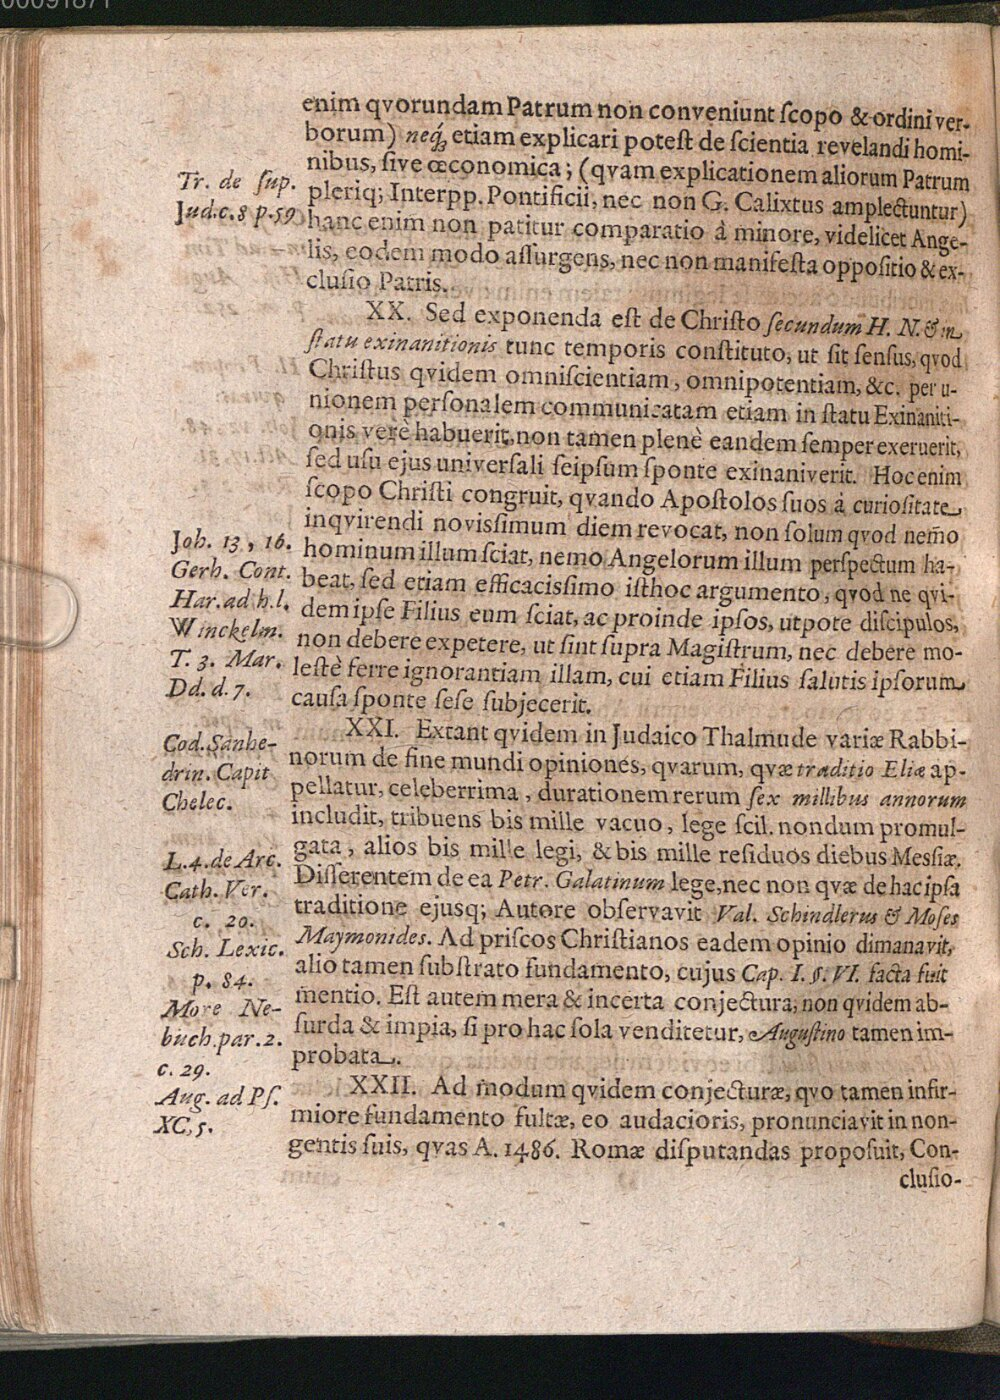 00091871
enim qvorundam Patrum non conveniunt ſcopo & ordini ver-
borum) neq́; etiam explicari poteſt de ſcientia revelandi homi-
nibus, ſive œconomica; (qvam explicationem aliorum Patrum
pleriq; Interpp. Pontificii, nec non G. Calixtus amplectuntur)
hanc enim non patitur comparatio à minore, videlicet Ange-
lis, eodem modo aſſurgens, nec non manifeſta oppoſitio & ex-
cluſio Patris.
Tr. de ſup.
Jud. c. 8 p. 59
XX. Sed exponenda eſt de Chriſto ſecundum H. N. & in
ſtatu exinanitionis tunc temporis conſtituto, ut ſit ſenſus, qvod
Chriſtus qvidem omniſcientiam, omnipotentiam, &c. per u-
nionem perſonalem communicatam etiam in ſtatu Exinaniti-
onis verè habuerit, non tamen plenè eandem ſemper exeruerit,
ſed uſu ejus univerſali ſeipſum ſponte exinaniverit. Hoc enim
ſcopo Chriſti congruit, qvando Apoſtolos ſuos à curioſitate
inqvirendi noviſſimum diem revocat, non ſolum qvod nem̃o
hominum illum ſciat, nemo Angelorum illum perſpectum ha-
beat, ſed etiam efficaciſſimo iſthoc argumento, qvod ne qvi-
dem ipſe Filius eum ſciat, ac proinde ipſos, utpote diſcipulos,
non debere expetere, ut ſint ſupra Magiſtrum, nec debere mo-
leſtè ferre ignorantiam illam, cui etiam Filius ſalutis ipſorum
cauſa ſponte ſeſe ſubjecerit.
Joh. 13, 16.
Gerh. Cont.
Har. ad h. l.
Winckelm.
T. 3. Mar.
Dd. d. 7.
XXI. Extant qvidem in Judaico Thalmude variæ Rabbi-
norum de fine mundi opiniones, qvarum, qvæ traditio Eliæ ap-
pellatur, celeberrima, durationem rerum ſex millibus annorum
includit, tribuens bis mille vacuo, lege ſcil. nondum promul-
gata, alios bis mille legi, & bis mille reſiduos diebus Meſſiæ.
Diſſerentem de ea Petr. Galatinum lege, nec non qvæ de hac ipſa
traditione ejusq; Autore obſervavit Val. Schindlerus & Moſes
Maymonides. Ad priſcos Chriſtianos eadem opinio dimanavit,
alio tamen ſubſtrato fundamento, cujus Cap. I. §. VI. facta fuit
mentio. Eſt autem mera & incerta conjectura, non qvidem ab-
ſurda & impia, ſi pro hac ſola venditetur, Auguſtino tamen im-
probata.
Cod. Sanhe-
drin. Capit
Chelec.
L. 4. de Arc.
Cath. Ver.
c. 20.
Sch. Lexic.
p. 84.
More Ne-
buch. par. 2.
c. 29.
Aug. ad Pſ.
XC, 5.
XXII. Ad modum qvidem conjecturæ, qvo tamen infir-
miore fundamento fultæ, eo audacioris, pronunciavit in non-
gentis ſuis, qvas A. 1486. Romæ diſputandas propoſuit, Con-
cluſio-